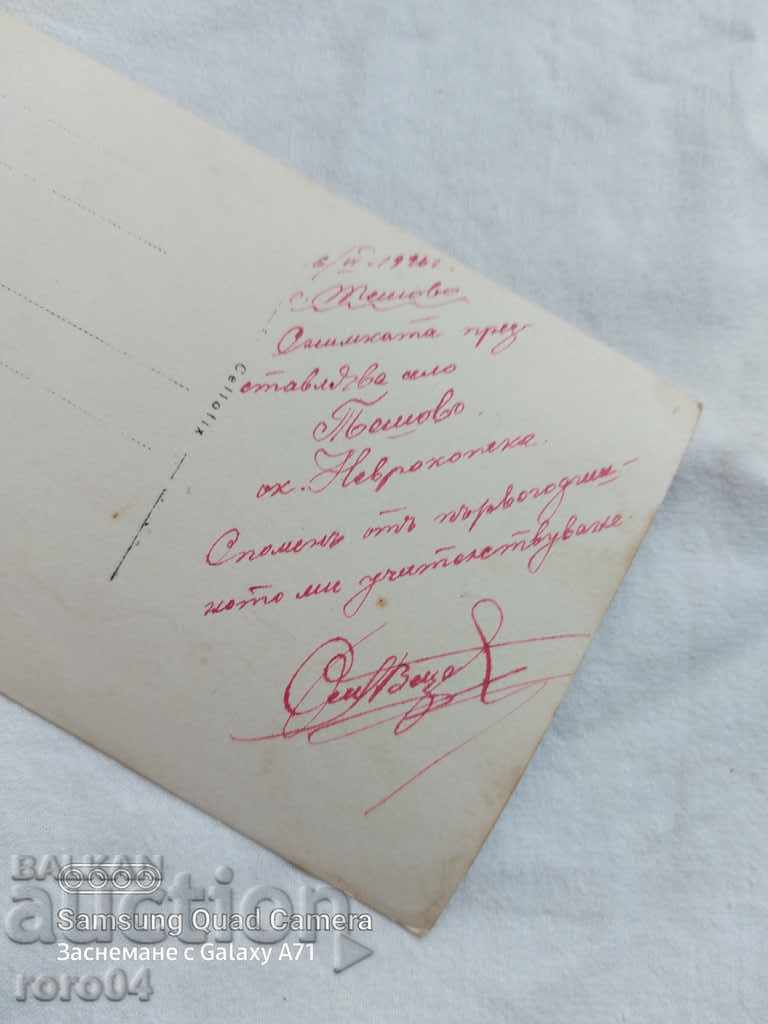 с. Тешово
Снимката пред-
ставлява село
Тешово
ок. Неврокопска
Споменъ отъ първогодиш-
ното ми учителствуване
Cellofix
BALKAN
auction
Samsung Quad Camera
Заснемане с Galaxy A71
roro04